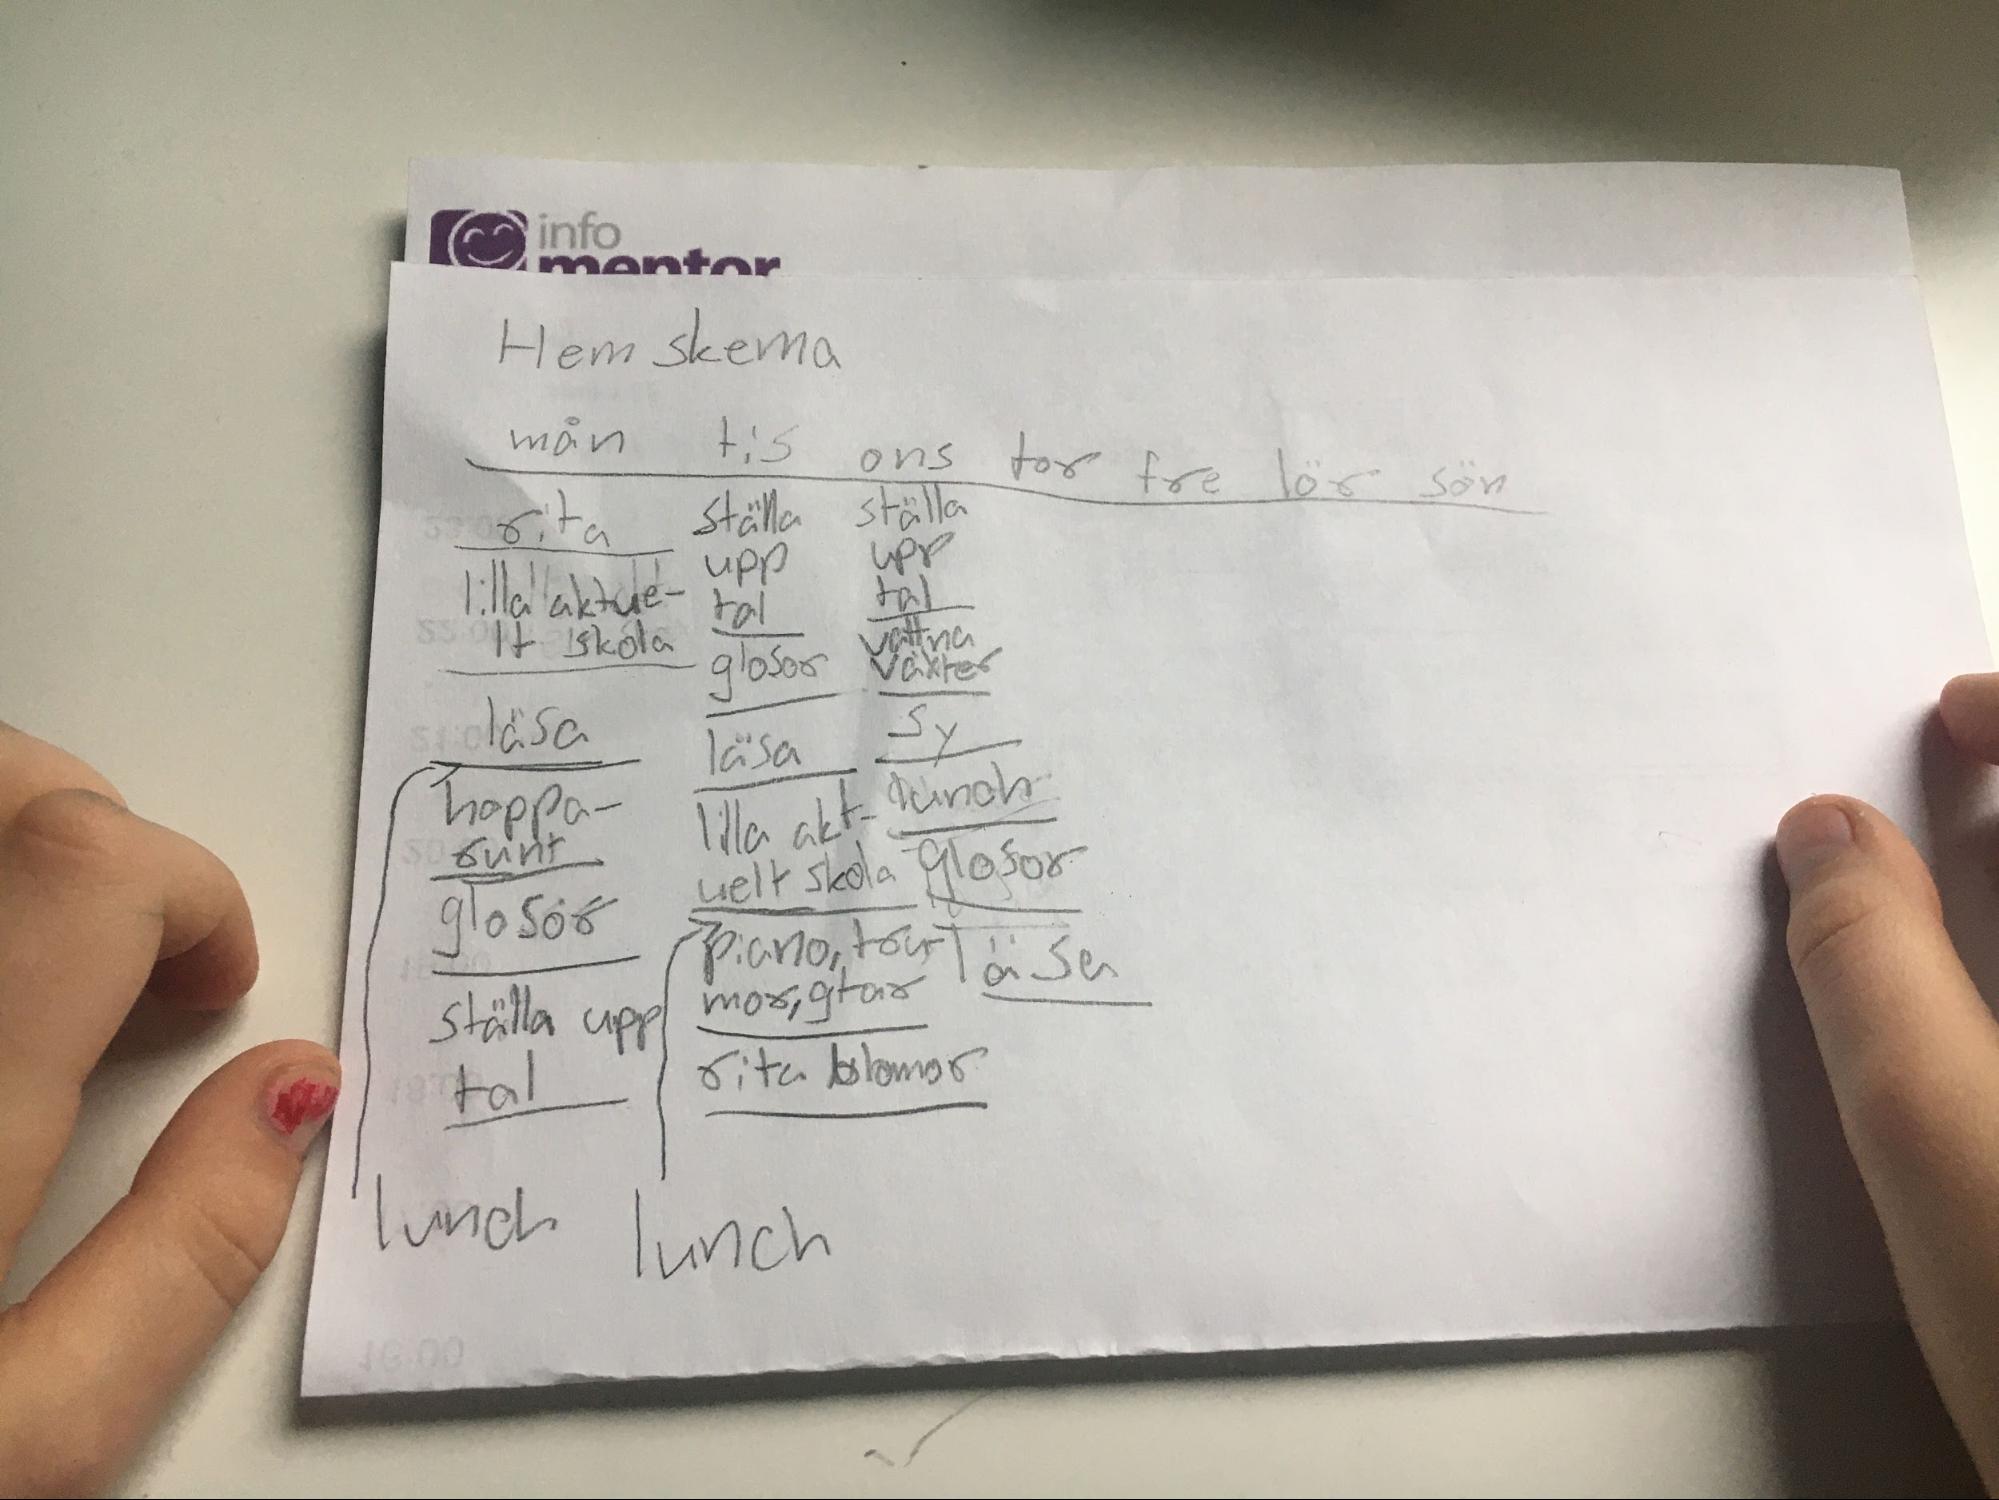 info
mentor
Hemskema
mån tis ons tor fre lör sön
rita
lilla aktue-
lt skola
läsa
hoppa-
runt
glosor
ställa upp
tal
lunch
ställa
upp
tal
glosor
läsa
lilla akt-
uelt skola
piano, tru-
mor, gtar
rita blomor
lunch
ställa
upp
tal
vattna
växter
sy
lunch
glosor
läsa
16:00